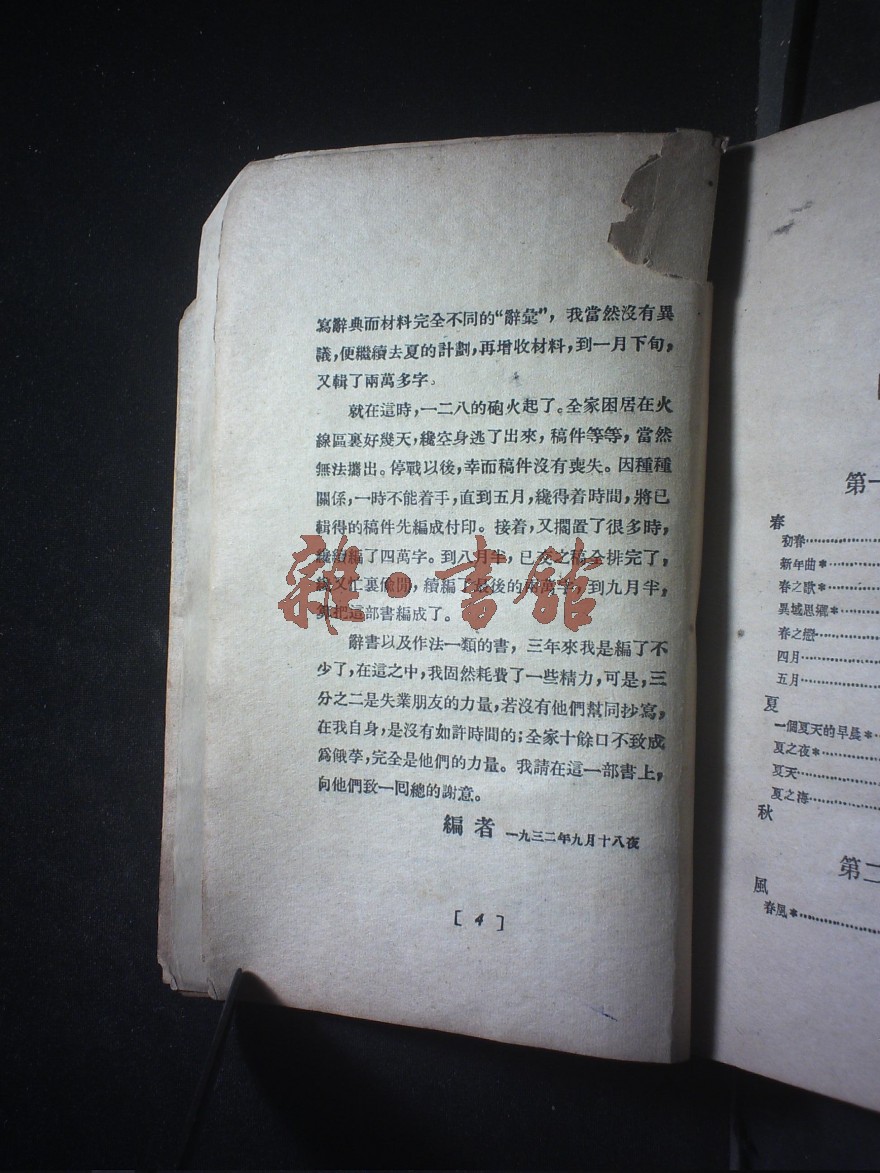 寫辭典而材料完全不同的“辭彙”，我當然沒有異
議，便繼續去夏的計劃，再增收材料，到一月下旬，
又輯了兩萬多字。
就在這時，一二八的砲火起了。全家困居在火
線區裏好幾天，纔空身逃了出來，稿件等等，當然
無法攜出。停戰以後，幸而稿件沒有喪失。因種種
關係，一時不能着手，直到五月，纔得着時間，將已
輯得的稿件先編成付印。接着，又擱置了很多時，
纔續編了四萬字。到八月半，已交之稿全排完了，
纔又忙裏偸閒，續編了最後的兩萬字，到九月半，
算把這部書編成了。
辭書以及作法一類的書，三年來我是編了不
少了，在這之中，我固然耗費了一些精力，可是，三
分之二是失業朋友的力量，若沒有他們幫同抄寫，
在我自身，是沒有如許時間的；全家十餘口不致成
爲餓莩，完全是他們的力量。我請在這一部書上，
向他們致一囘總的謝意。
編者 一九三二年九月十八夜
[4]
雜·書館
第一
春
初春
新年曲*
春之歌*
異域思鄉*
春之戀
四月
五月
夏
一個夏天的早晨*
夏之夜*
夏天
夏之梅
秋
第二
風
春風*